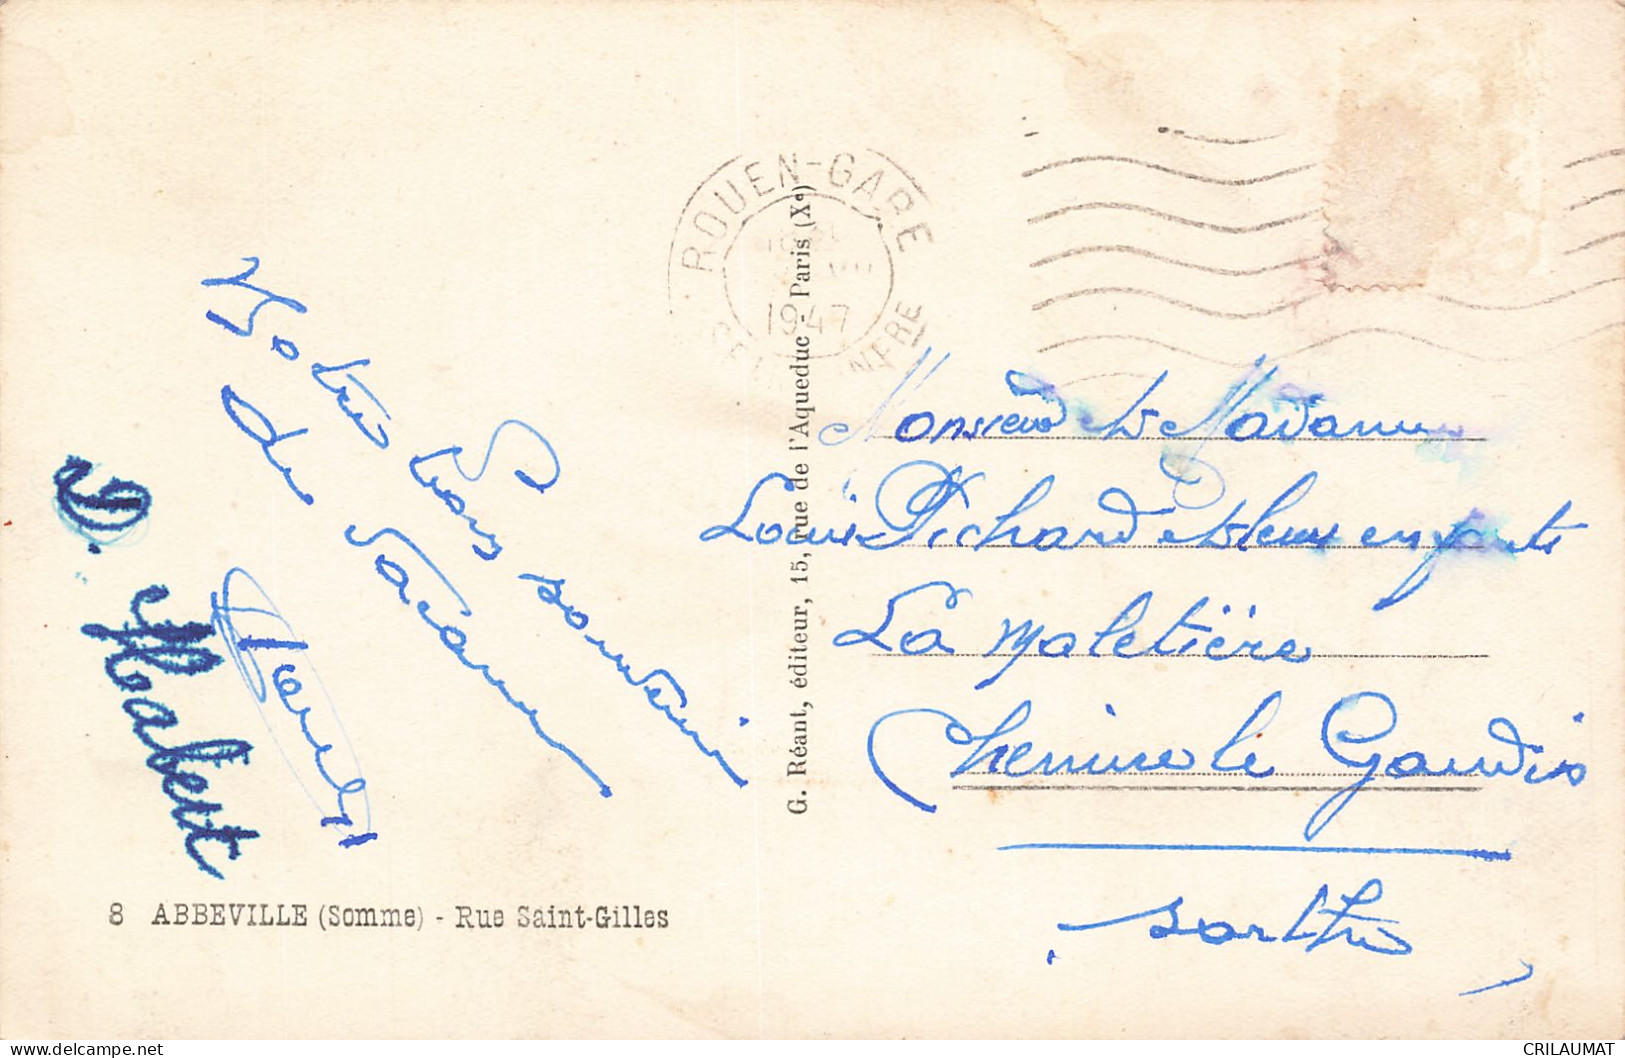 ROUEN-GARE
1947
SEINE INFRE
Votre bons souvenir
de Vacances
D. Habert
8 ABBEVILLE (Somme) - Rue Saint-Gilles
G. Réant, éditeur, 15, rue de l'Aqueduc - Paris (Xe)
Monsieur et Madame
Louis Pichard et leurs enfants
La Maletière
Chemiré le Gaudin
Sarthe
CRILAUMAT